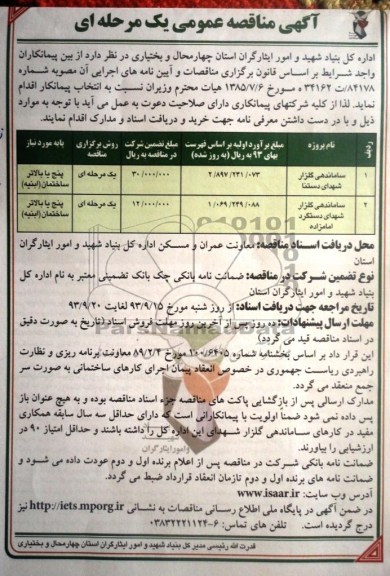 آگهی مناقصه عمومی یک مرحله ای
اداره کل بنیاد شهید و امور ایثارگران استان چهارمحال و بختیاری در نظر دارد از بین پیمانکاران
واجد شرایط بر اساس قانون برگزاری مناقصات و آیین نامه های اجرایی آن مصوبه شماره
۸۴۱۷۸/ت ۳۴۱۶۲ ه مورخ ۱۳۸۵/۷/۶ هیات محترم وزیران نسبت به انتخاب پیمانکار اقدام
نماید. لذا از کلیه شرکتهای پیمانکاری دارای صلاحیت دعوت به عمل می آید با توجه به موارد
ذیل و با در دست داشتن معرفی نامه جهت خرید و دریافت اسناد و مدارک اقدام نمایند.
ردیف نام پروژه مبلغ برآورد اولیه بر اساس فهرست بهای ۹۳ به ریال (به روز شده) مبلغ تضمین شرکت در مناقصه به ریال روش برگزاری مناقصه پایه مورد نیاز
۱ ساماندهی گلزار شهدای دستنا ۲/۸۹۷/۲۴۱/۰۷۳ ۳۰/۰۰۰/۰۰۰ یک مرحله ای پنج یا بالاتر ساختمان (ابنیه)
۲ ساماندهی گلزار شهدای دستگرد امامزاده ۱/۰۶۹/۲۴۹/۰۸۸ ۱۲/۰۰۰/۰۰۰ یک مرحله ای پنج یا بالاتر ساختمان (ابنیه)
محل دریافت اسناد مناقصه: معاونت عمران و مسکن اداره کل بنیاد شهید و امور ایثارگران
استان
نوع تضمین شرکت در مناقصه: ضمانت نامه بانکی چک بانک تضمینی معتبر به نام اداره کل
بنیاد شهید و امور ایثارگران استان
تاریخ مراجعه جهت دریافت اسناد: از روز شنبه مورخ ۹۳/۹/۱۵ لغایت ۹۳/۹/۲۰
مهلت ارسال پیشنهادات: ده روز پس از آخرین روز مهلت فروش اسناد (تاریخ به صورت دقیق
در اسناد مناقصه قید می گردد)
این قرار داد بر اساس بخشنامه شماره ۲۰۰/۶۴۰۵ مورخ ۸۹/۲/۲ معاونت برنامه ریزی و نظارت
راهبردی ریاست جمهوری در خصوص انعقاد پیمان اجرای کارهای ساختمانی به صورت سر
جمع منعقد می گردد.
مدارک ارسالی پس از بازگشایی پاکت های مناقصه جزء اسناد مناقصه بوده و به هیچ عنوان باز
پس داده نمی شود ضمنا اولویت با پیمانکارانی است که دارای حداقل سه سال سابقه همکاری
مفید در کارهای ساماندهی گلزار شهدای این اداره کل را داشته باشند و حداقل امتیاز ۹۰ در
ارزشیابی را بیاورند.
ضمانت نامه بانکی شرکت در مناقصه پس از اعلام برنده اول و دوم عودت داده می شود و
ضمانت نامه های برنده اول و دوم تازمان انعقاد قرارداد ضبط می گردد.
آدرس وب سایت: www.isaar.ir
در ضمن آگهی در پایگاه ملی اطلاع رسانی مناقصات به نشانی http://iets.mporg.ir نیز
درج گردیده است. تلفن های تماس: ۶-۰۳۸۳۲۲۲۱۱۲۴
قدرت الله رئیسی مدیر کل بنیاد شهید و امور ایثارگران استان چهارمحال و بختیاری